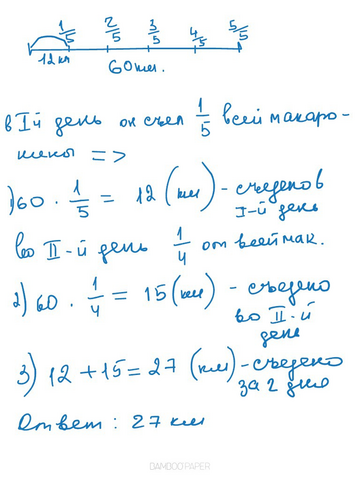 1/5 2/5 3/5 4/5 5/5
12 км
60 км.
в Iй день он съел 1/5 всей макаро-
нины =>
1) 60 · 1/5 = 12 (км) - съедено в
I-й день
во II-й день 1/4 от всей мак.
2) 60 · 1/4 = 15 (км) - съедено
во II-й
день
3) 12 + 15 = 27 (км) - съедено
за 2 дня
Ответ : 27 км
BAMBOO PAPER